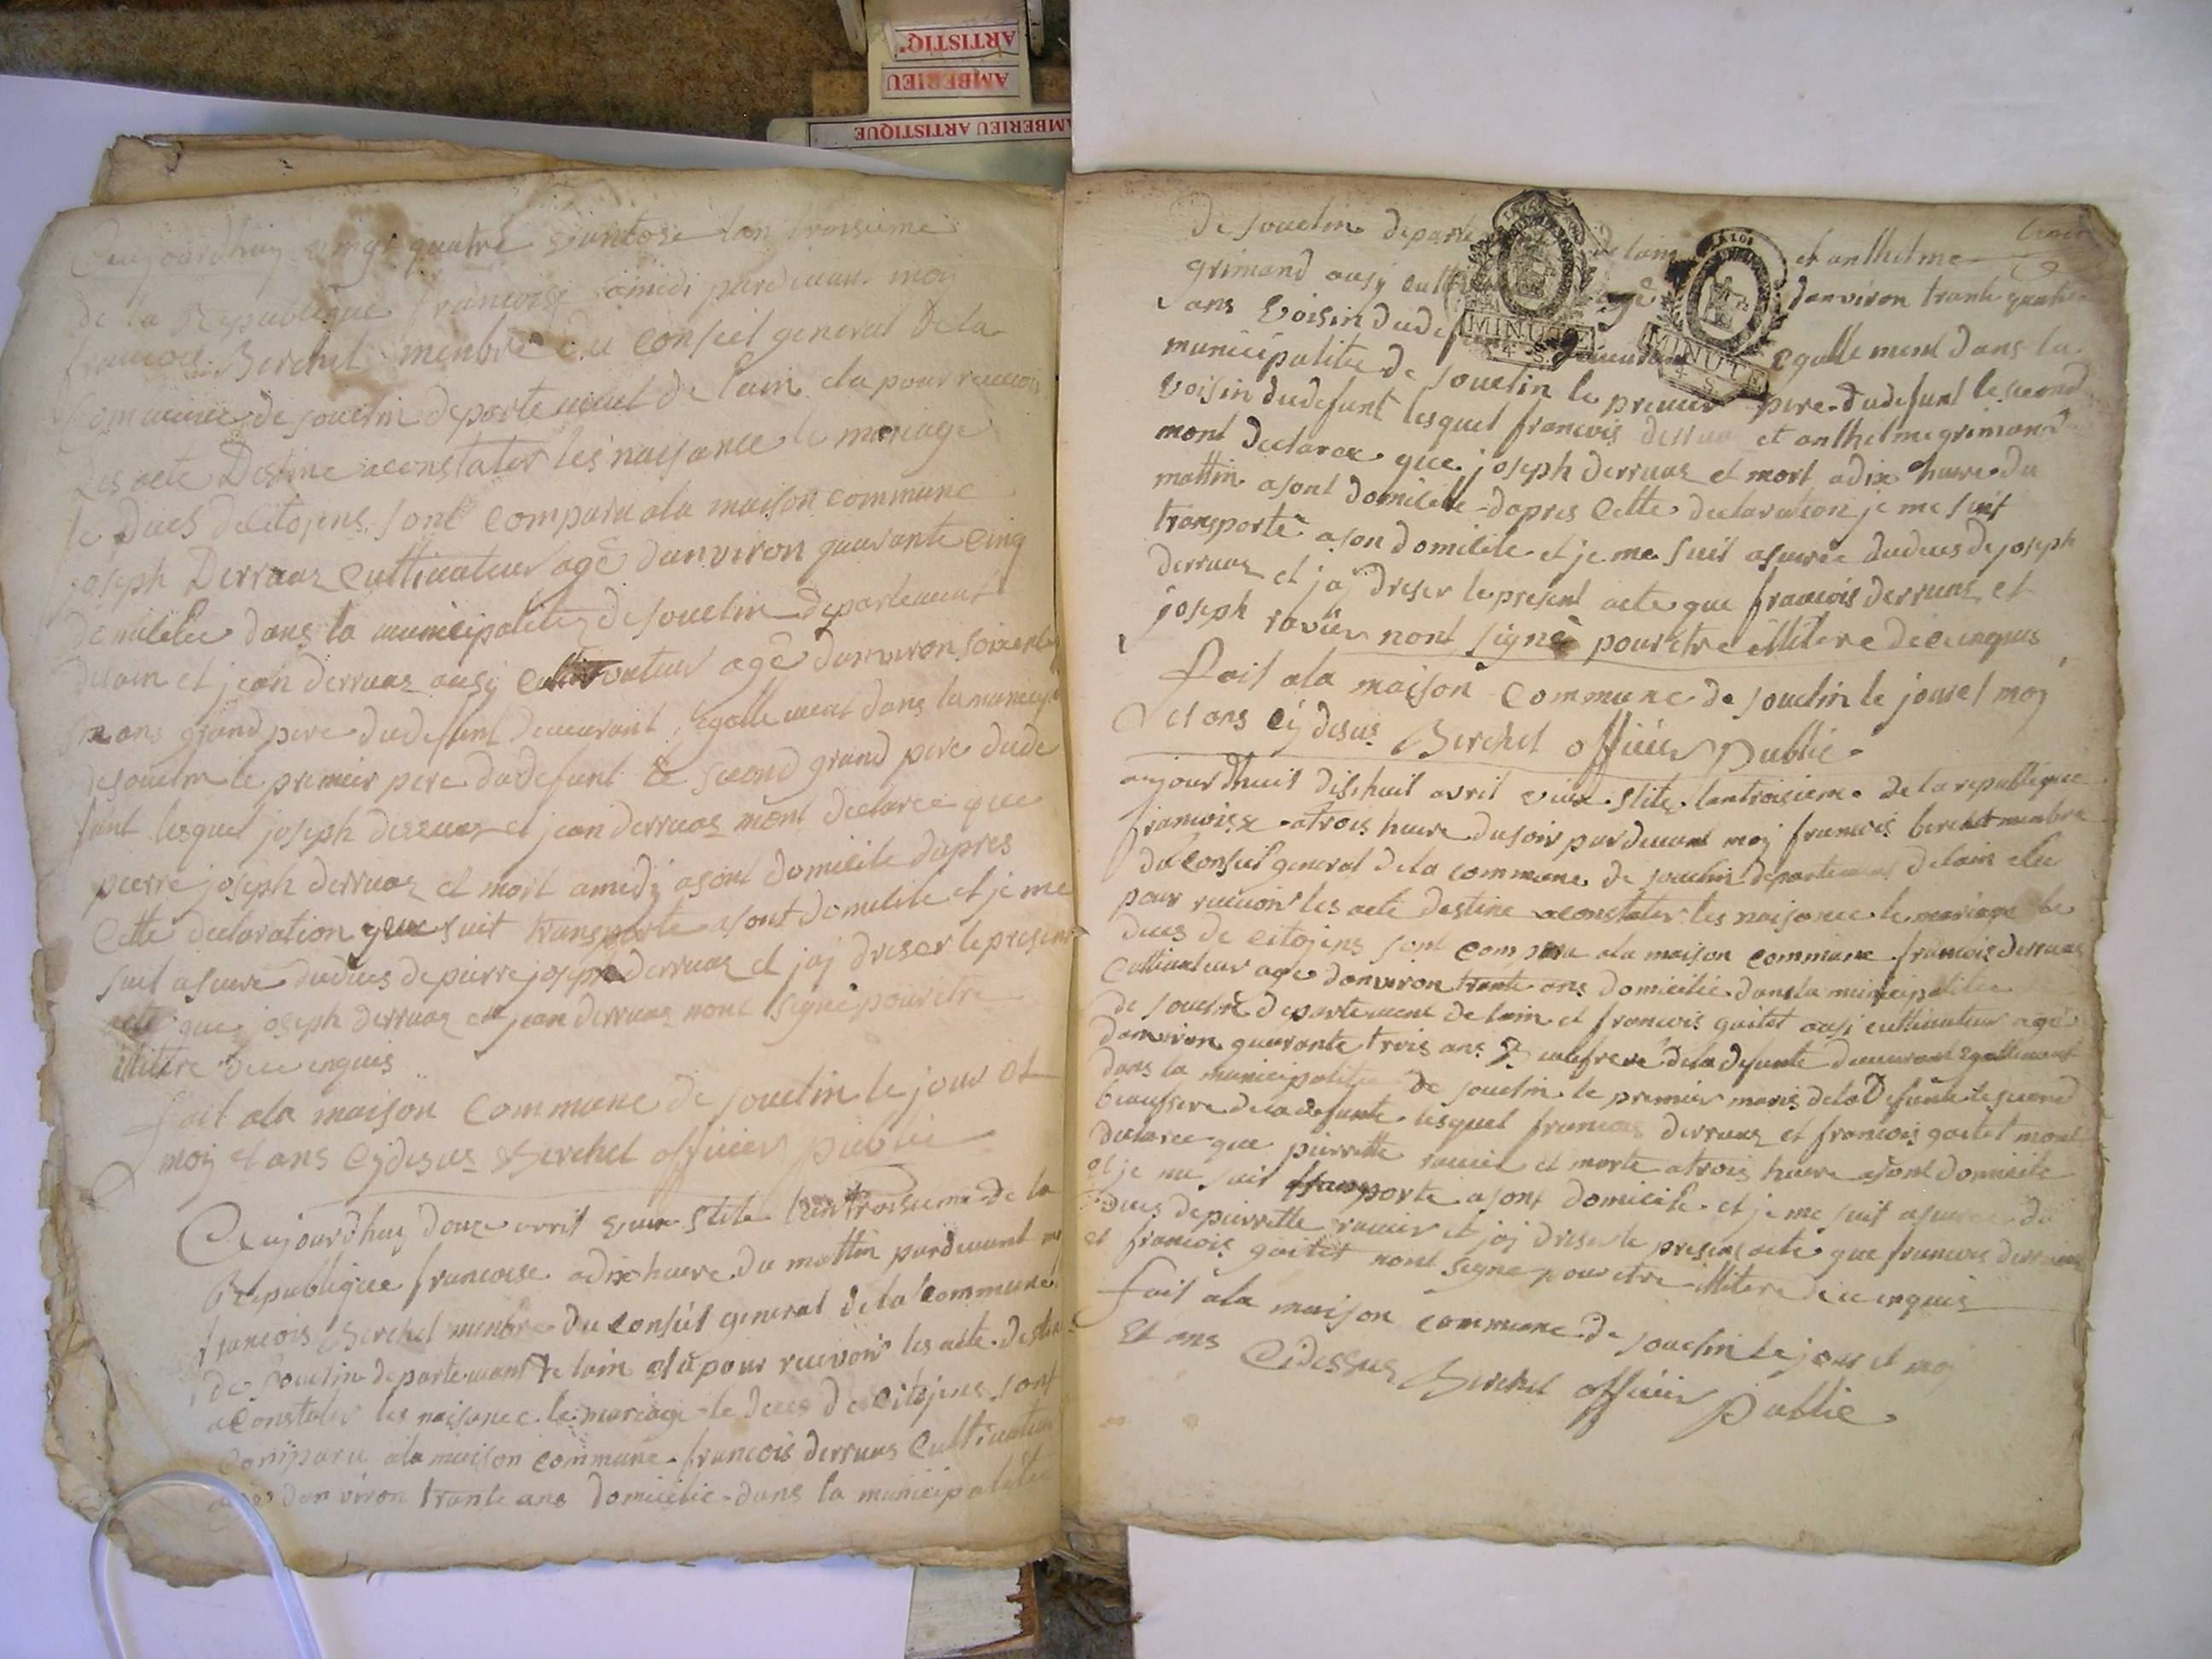 ARTISTIQ
AMBERIEU
AMBERIEU ARTISTIQUE
aujourdhuy vingt quatre vantose lan troisieme
de la Republique francoise amidi pardevant moy
francois Berchet menbre du Conseil general de la
Commune de souclin departement de lain elu pour recevoir
les acte Destine aconstater les naisance le mariage
le Duces de Citojens sont comparu ala maison commune
joseph Derruaz Cultivateur agé danviron quarante Cinq
domicilie dans la municipalite de souclin departement
delain et jean derruaz ausy Cultivateur agé danviron soixente
ans grand pere dudefunt demeurant Egallement dans la municipa
de souclin le premier pere dudefunt le second grand pere dude
funt lesquel joseph derruaz et jean derruaz mont declaree que
pierre joseph derruaz et mort amidy asont domicile dapres
Cette declaration je me suit transporte asont domicile et je me
suit asure duduces de pierre joseph derruaz et jaj dreser le present
acte que joseph derruaz et jean derruaz nont signé pour etre
illitere dece enquis
fait ala maison Commune de souclin le jour et
moy et ans Cy desus Berchet officier public
aujourdhuy douze avril vieux stile lan troisieme de la
Republique francoise adix heure du mattin pardevant moy
francois Berchet menbre du Conseil general de la Commune
de souclin departemant de lain elu pour recevoir les acte destine
aConstater les naisance le mariage le Duces de Citojens sont
Comparu ala maison commune francois derruas Cultivateur
agé danviron trante ans domicilie dans la municipalite
de souclin departe de lain et anthelme
grimand ausy cultiv agé danviron trante quatre
ans voisin dudefunt demeurant Egallement dans la
municipalitee de souclin le premier pere dudefunt le second
voisin dudefunt lesquel francois derruaz et anthelme grimand
mont declaree que joseph derruaz et mort adix heure du
mattin asont domicile dapres Cette declaration je me suit
transporté ason domicile et je me suit asuree duduces de joseph
derruaz et jaj dreser le present acte que francois derruaz et
joseph ravier nont signé pour etre illitere dece enquis
fait ala maison Commune de souclin le jour et moy
et ans Cy desus Berchet officier Public
MINUTE
4 S
LA LOI
MINUTE
4 S
aujourdhuit dishuit avril vieux stile lantroisieme de la republique
francoisse atrois heure dusoir pardevant moy francois berchet menbre
du Conseil general de la commune de souclin departement delain elu
pour recevoir les acte destine aconstater les naisance le mariage le
duces de citojens sont comparu ala maison commune francois derruas
Cultivateur agé danviron trante ans domicilie dans la municipalitee
de souclin departement de lain et francois gaitet ausi cultivateur agé
danviron quarante trois ans beaufrere dela defunte demeurant Egallement
dans la municipalitee de souclin le premier maris dela Defunte le second
beaufrere dela defunte lesquel francois derruaz et francois gaitet mont
declaree que pierrette ravier et morte atrois heure asont domicile
et je me suit transporte asont domicile et je me suit asuree du
duces de pierrette ravier et jaj dreser le present acte que francois derruaz
et francois gaitet nont signé pour etre illitere dece enquis
fait ala maison commune de souclin le jour et moy
Et ans Cidessus Berchet officier Public